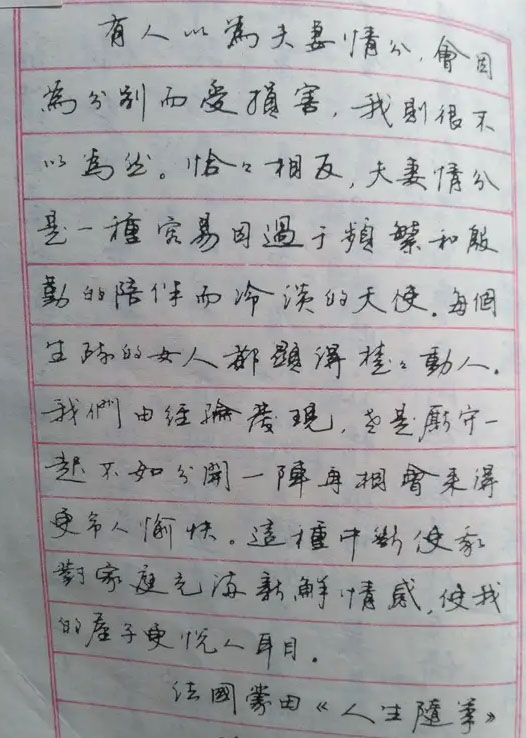 有人以為夫妻情分，會因
為分別而受損害，我則很不
以為然。恰々相反，夫妻情分
是一種容易因過于頻繁和殷
勤的陪伴而冷淡的天使。每個
生疏的女人都顯得楚々動人。
我們由經驗發現，老是厮守一
起不如分開一陣再相會來得
更令人愉快。這種中斷使我
對家庭充滿新鮮情感，使我
的屋子更悅人耳目。
法國蒙田《人生隨筆》